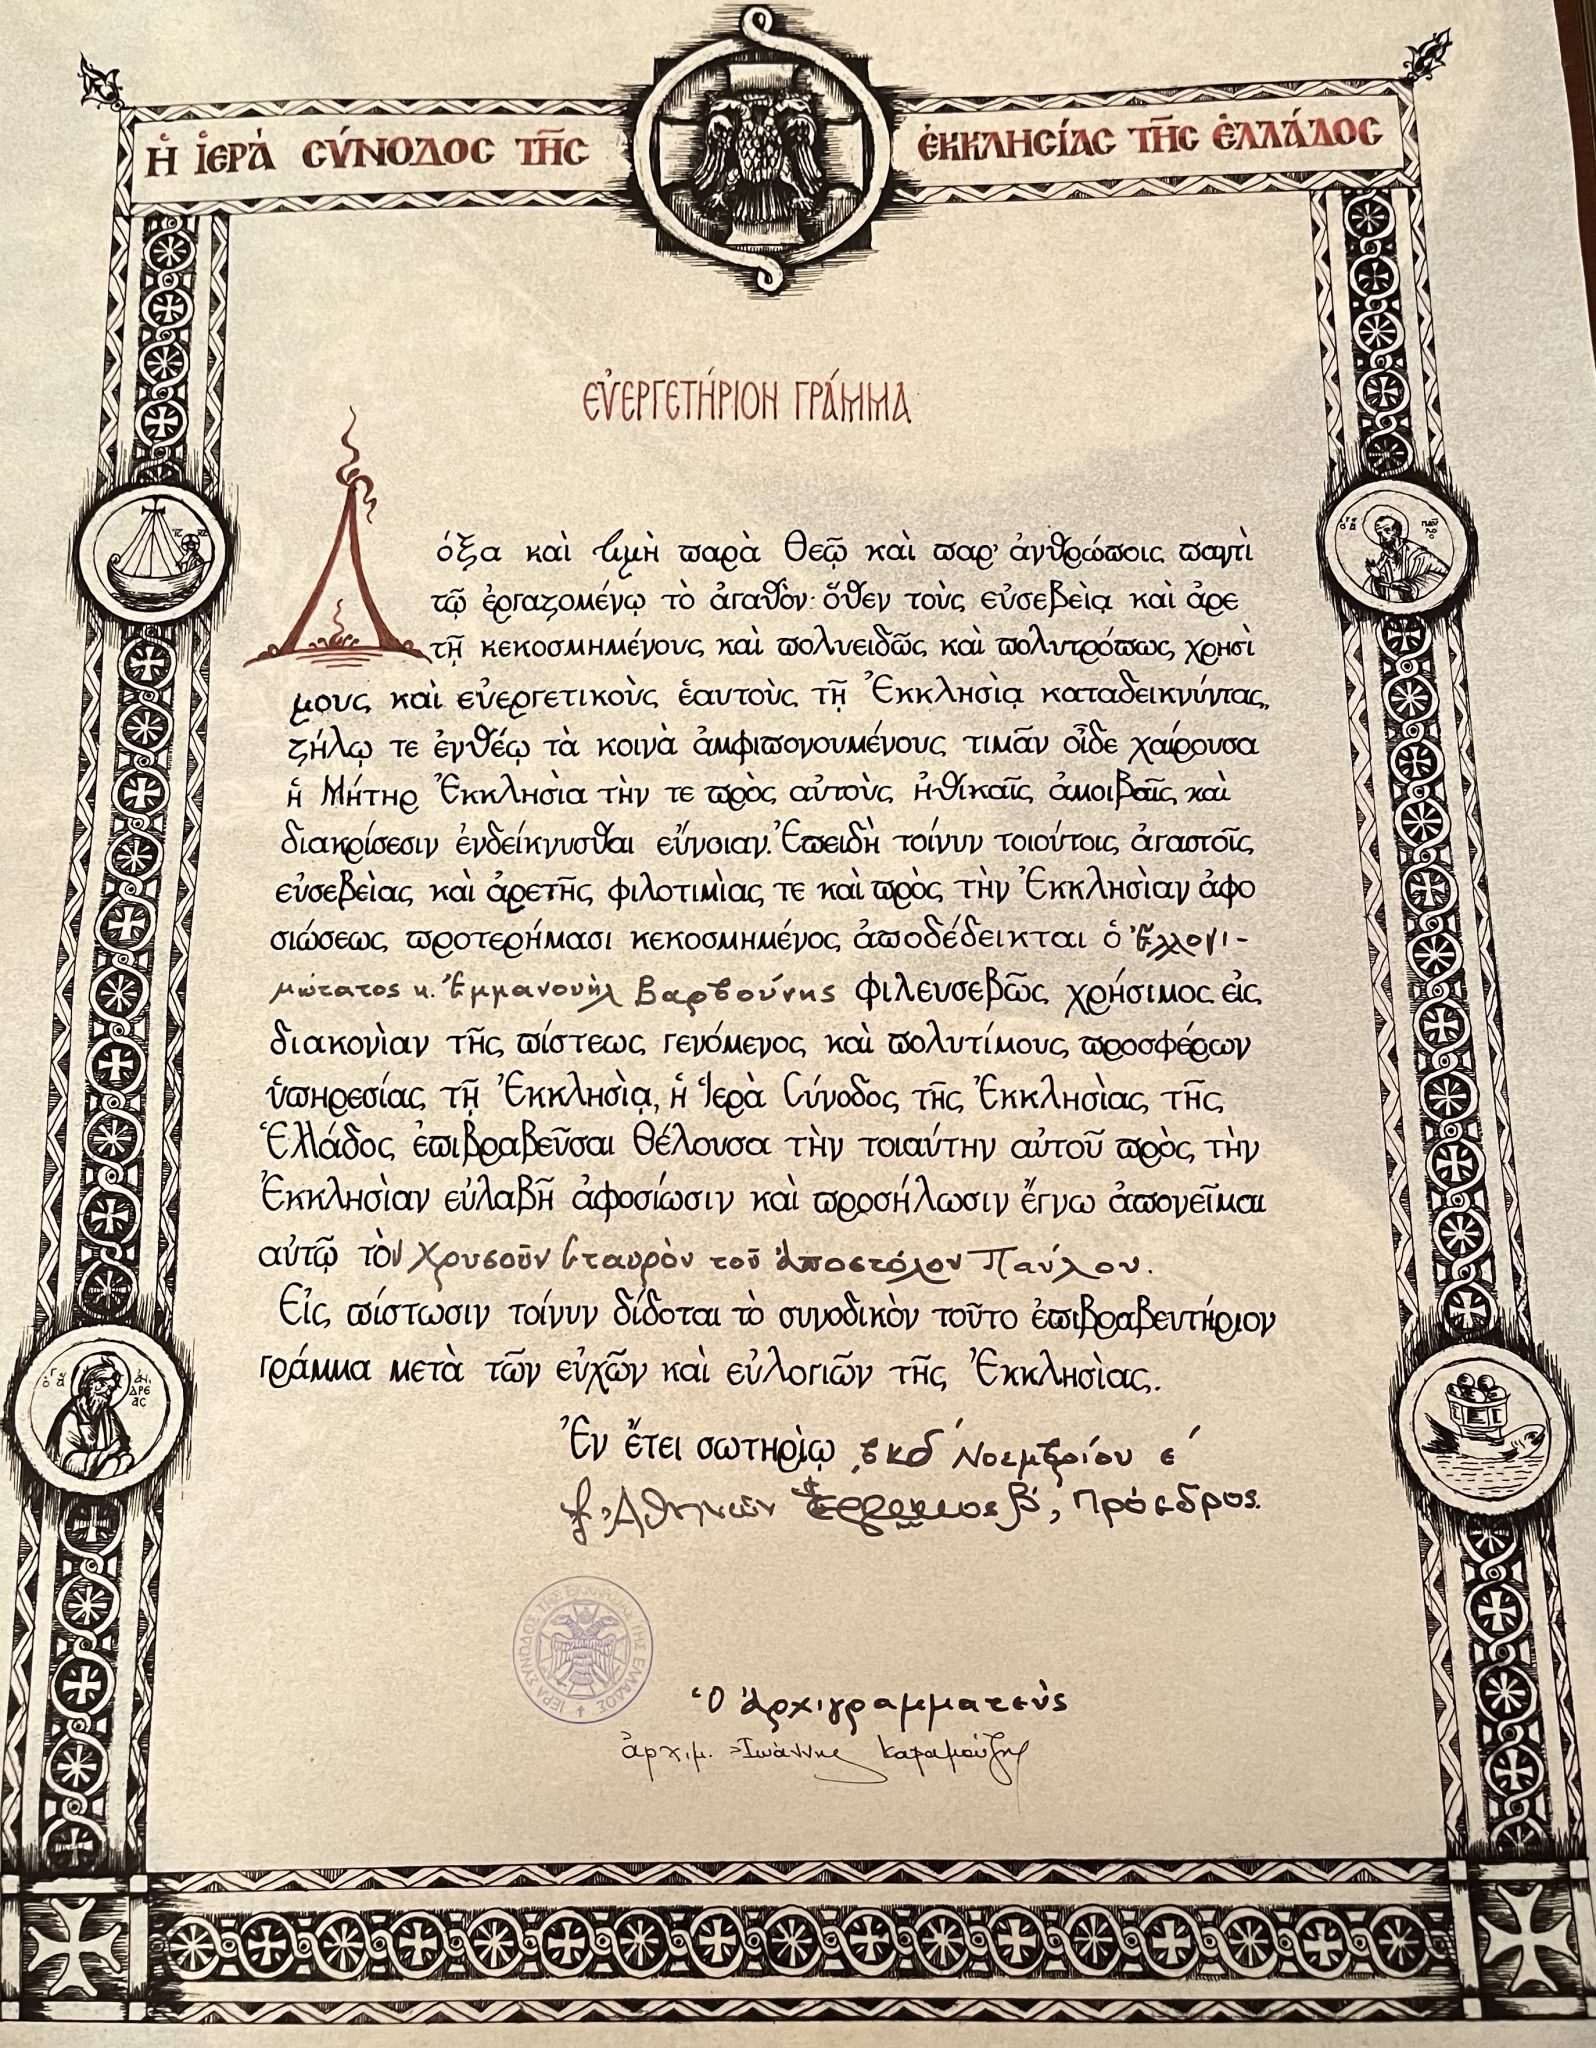 Ἡ ἹΕΡᾺ ΣΎΝΟΔΟΣ ΤΗ͂Σ ἘΚΚΛΗΣΊΑΣ ΤΗ͂Σ ἙΛΛΆΔΟΣ
ΕὐΕΡΓΕΤΉΡΙΟΝ ΓΡΆΜΜΑ
Δόξα καὶ τιμὴ παρὰ Θεῷ καὶ παρ' ἀνθρώποις παντὶ
τῷ ἐργαζομένῳ τὸ ἀγαθὸν· ὅθεν τοὺς εὐσεβείᾳ καὶ ἀρε
τῇ κεκοσμημένους καὶ πολυειδῶς καὶ πολυτρόπως χρησί
μους καὶ εὐεργετικοὺς ἑαυτοὺς τῇ Ἐκκλησίᾳ καταδεικνύντας,
ζήλῳ τε ἐνθέῳ τὰ κοινὰ ἀμφιπονουμένους τιμᾶν οἶδε χαίρουσα
ἡ Μήτηρ Ἐκκλησία τὴν τε πρὸς αὐτοὺς ἠθικαῖς ἀμοιβαῖς καὶ
διακρίσεσιν ἐνδείκνυσθαι εὔνοιαν. Ἐπειδὴ τοίνυν τοιούτοις ἀγαστοῖς
εὐσεβείας καὶ ἀρετῆς φιλοτιμίας τε καὶ πρὸς τὴν Ἐκκλησίαν ἀφο
σιώσεως προτερήμασι κεκοσμημένος ἀποδέδεικται ὁ Ἐλλογι-
μώτατος κ. Ἐμμανουὴλ Βαρβούνης φιλευσεβῶς χρήσιμος εἰς
διακονίαν τῆς πίστεως γενόμενος καὶ πολυτίμους προσφέρων
ὑπηρεσίας τῇ Ἐκκλησίᾳ, ἡ Ἱερὰ Σύνοδος τῆς Ἐκκλησίας τῆς
Ἑλλάδος ἐπιβραβεῦσαι θέλουσα τὴν τοιαύτην αὐτοῦ πρὸς τὴν
Ἐκκλησίαν εὐλαβῆ ἀφοσίωσιν καὶ προσήλωσιν ἔγνω ἀπονεῖμαι
αὐτῷ τὸν Χρυσοῦν Σταυρὸν τοῦ Ἀποστόλου Παύλου.
Εἰς πίστωσιν τοίνυν δίδοται τὸ συνοδικὸν τοῦτο ἐπιβραβευτήριον
γράμμα μετὰ τῶν εὐχῶν καὶ εὐλογιῶν τῆς Ἐκκλησίας.
Ἐν ἔτει σωτηρίῳ ͵βκδ΄ Νοεμβρίου ε΄
Ἀθηνῶν Ἱερώνυμος Β΄, Πρόεδρος.
ΙΕΡΑ ΣΥΝΟΔΟΣ ΤΗΣ ΕΚΚΛΗΣΙΑΣ ΤΗΣ ΕΛΛΑΔΟΣ
Ὁ Ἀρχιγραμματεὺς
ἀρχιμ. Ἰωάννης Καραμούζης